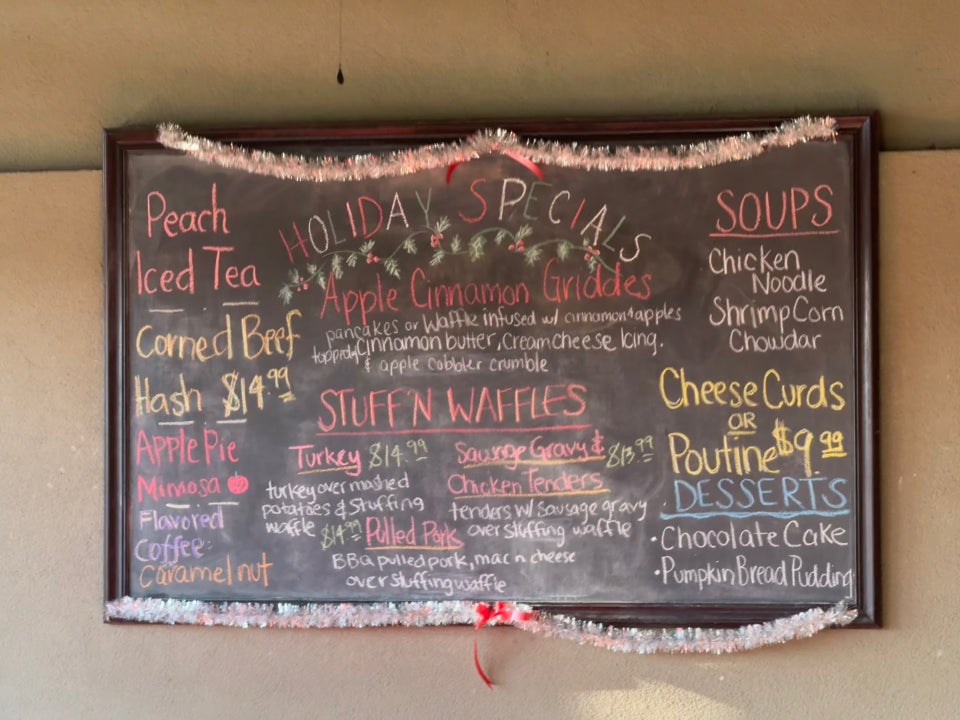 Peach
Iced Tea
Corned Beef
Hash $14.99
Apple Pie
Mimosa
Flavored
Coffee:
Caramel nut
HOLIDAY SPECIALS
Apple Cinnamon Griddes
pancakes or Waffle infused w/ cinnamon & apples
topped w/ Cinnamon butter, Cream cheese Icing.
& apple cobbler crumble
STUFF'N WAFFLES
Turkey $14.99
turkey over mashed
potatoes & Stuffing
waffle
Sausage Gravy & $13.99
Chicken Tenders
tenders w/ sausage gravy
over stuffing waffle
$14.99 Pulled Pork
BBQ pulled pork, mac n cheese
over stuffing waffle
SOUPS
Chicken
Noodle
Shrimp Corn
Chowdar
Cheese Curds
OR
Poutine $9.99
DESSERTS
• Chocolate Cake
• Pumpkin Bread Pudding